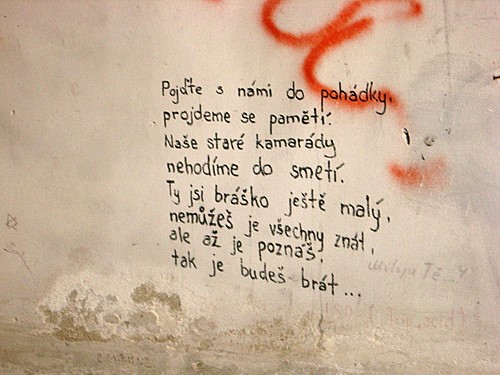 Pojďte s námi do pohádky,
projdeme se pamětí.
Naše staré kamarády
nehodíme do smetí.
Ty jsi bráško ještě malý,
nemůžeš je všechny znát,
ale až je poznáš,
tak je budeš brát...
Miluju Tě